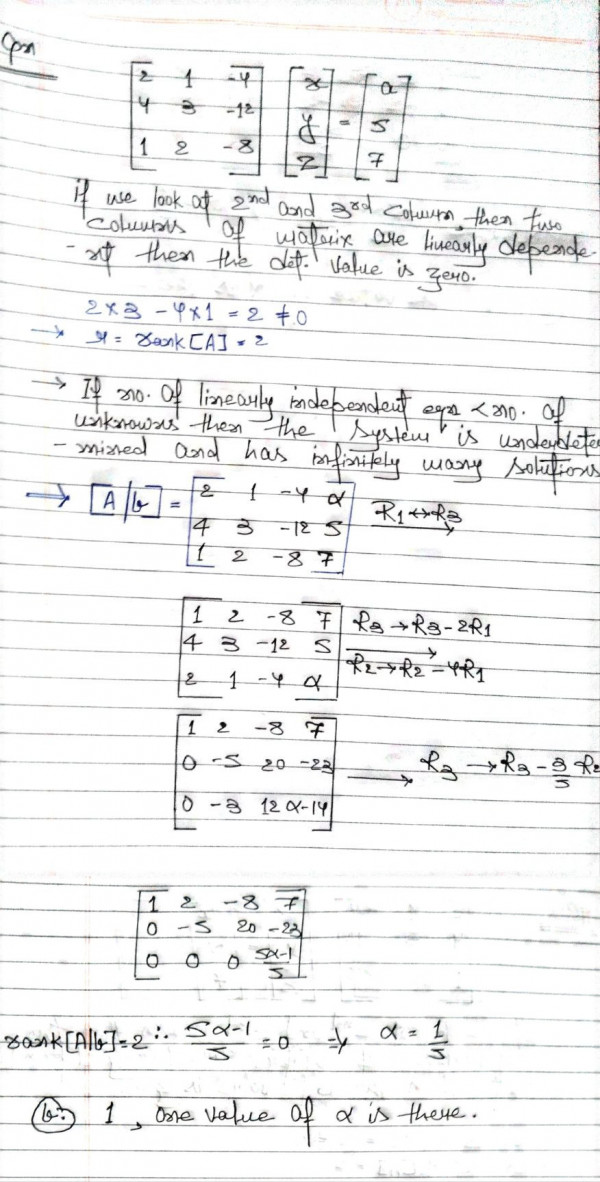 Qn
[2 1 -4] [x] [α]
[4 3 -12] [y] = [5]
[1 2 -8] [z] [7]
if we look at 2nd and 3rd column, then two
columns of matrix are linearly depende-
-nt then the det. value is zero.
2×3 - 4×1 = 2 ≠ 0
→ r = rank[A] = 2
→ If no. of linearly independent eqn < no. of
unknowns then the system is underdeter
-mined and has infinitely many solutions
→ [A|b] = [2 1 -4 α] R1↔R3
[4 3 -12 5]
[1 2 -8 7]
[1 2 -8 7] R3→R3-2R1
[4 3 -12 5] R2→R2-4R1
[2 1 -4 α]
[1 2 -8 7]
[0 -5 20 -23] → R3 → R3 - 3/5 R2
[0 -3 12 α-14]
[1 2 -8 7]
[0 -5 20 -23]
[0 0 0 5α-1/5]
rank[A|b]=2 ∴ 5α-1/5 = 0 ⇒ α = 1/5
b: 1, one value of α is there.